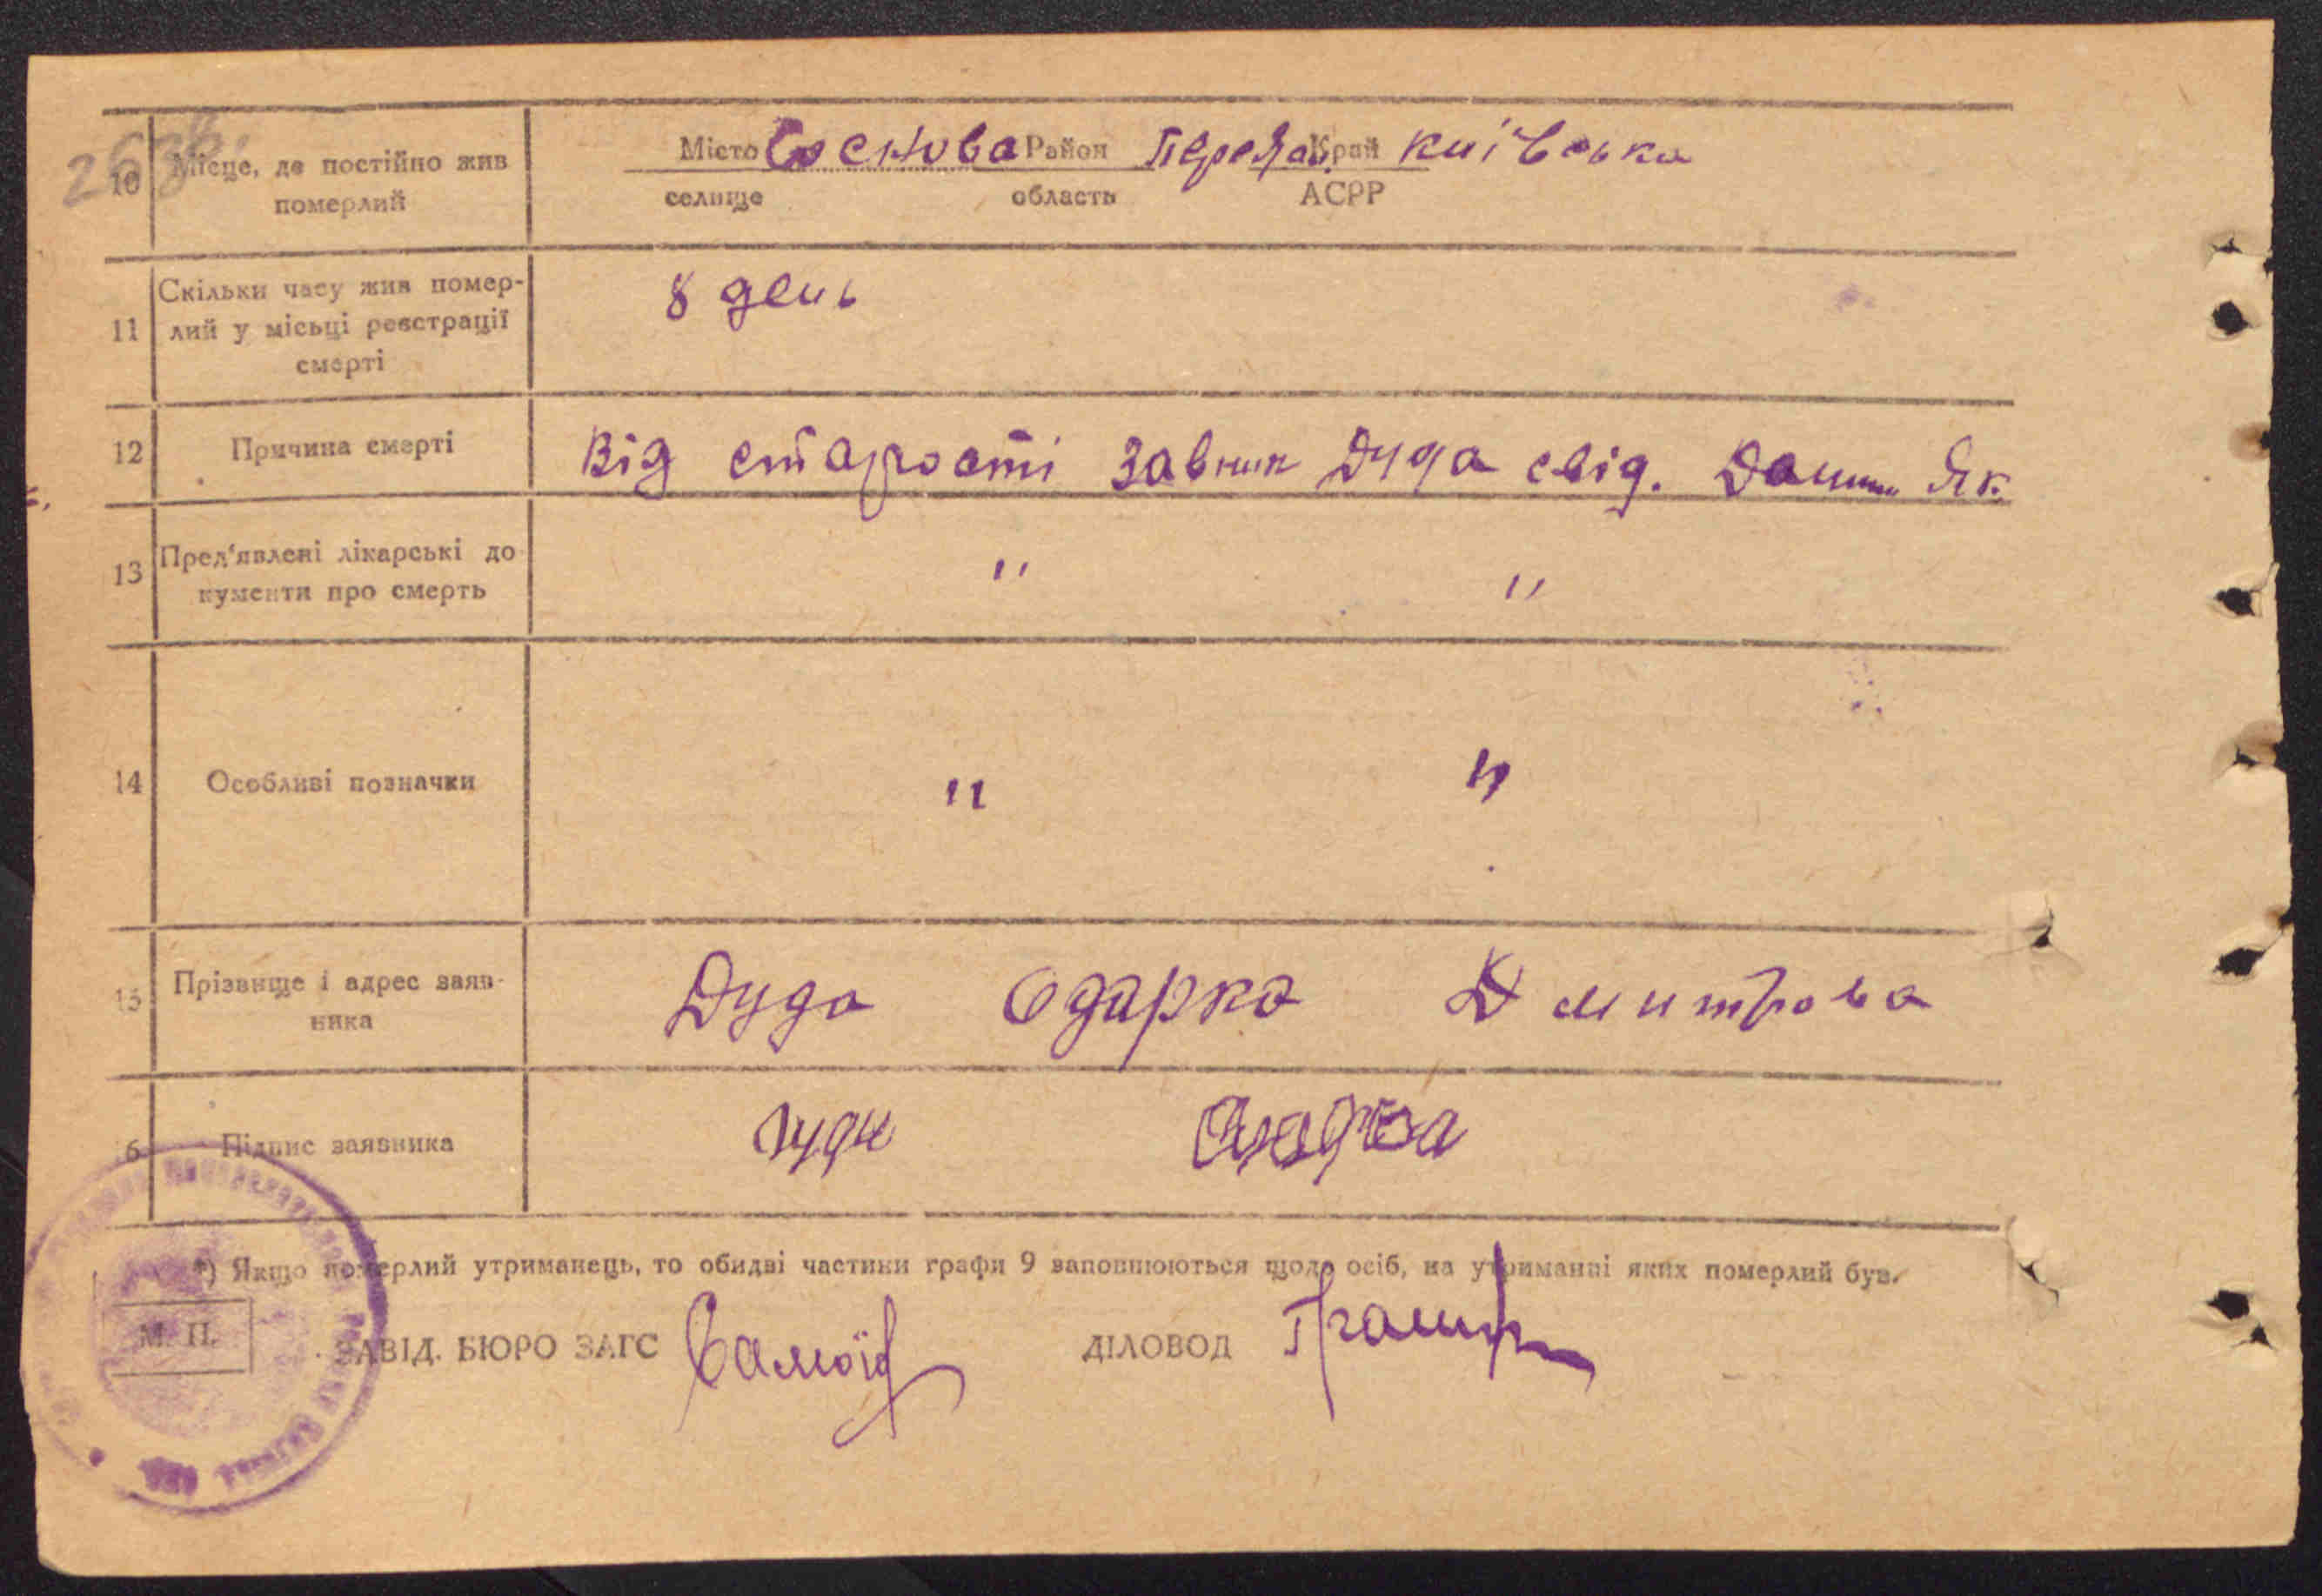 263в.
10 Місце, де постійно жив померлий
Місто Соснова Район Переяс. Край Київська
селище область АСРР
11 Скільки часу жив помер-
лий у місьці реєстрації
смерті
8 день
12 Причина смерті
Від старости Дуда свід. Як
13 Пред'явлені лікарські до
кументи про смерть
" "
14 Особливі позначки
" "
15 Прізвище і адрес заяв-
ника
Дуда Одарка Дмитрова
6 Підпис заявника
Дуда
*) Якщо померлий утриманець, то обидві частини графи 9 заповнюються щодо осіб, на утриманні яких померлий був.
М. П.
ЗАВІД. БЮРО ЗАГС
ДІЛОВОД